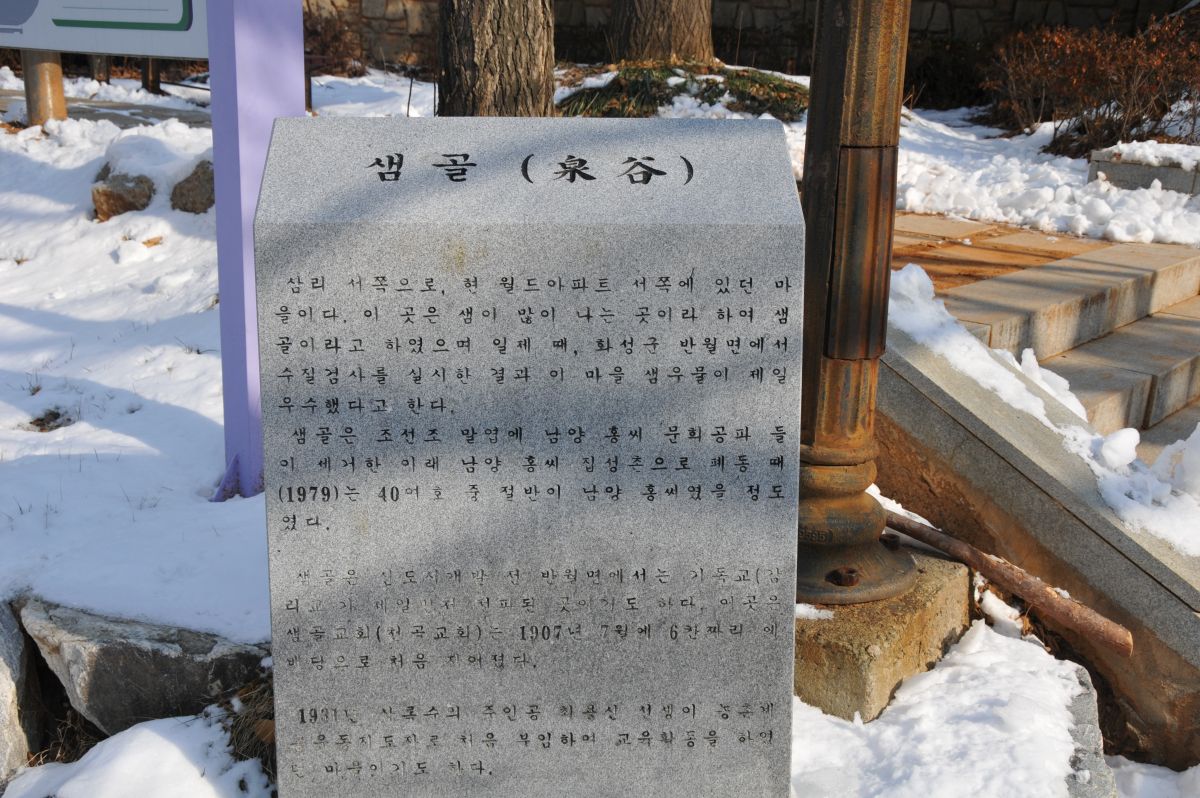 샘골 (泉谷)
삼리 서쪽으로, 현 월드아파트 서쪽에 있던 마
을이다. 이 곳은 샘이 많이 나는 곳이라 하여 샘
골이라고 하였으며 일제 때, 화성군 반월면에서
수질검사를 실시한 결과 이 마을 샘우물이 제일
우수했다고 한다.
샘골은 조선조 말엽에 남양 홍씨 문희공파 들
이 세거한 이래 남양 홍씨 집성촌으로 폐동 때
(1979)는 40여호 중 절반이 남양 홍씨였을 정도
였다.
샘골은 신도시개발 전 반월면에서는 기독교(감
리교)가 제일 먼저 전파된 곳이기도 하다. 이곳은
샘골교회(천곡교회)는 1907년 7월에 6칸짜리 예
배당으로 처음 지어졌다.
1931년 상록수의 주인공 최용신 선생이 농촌계
몽운동지도자로 처음 부임하여 교육활동을 하였
던 마을이기도 하다.